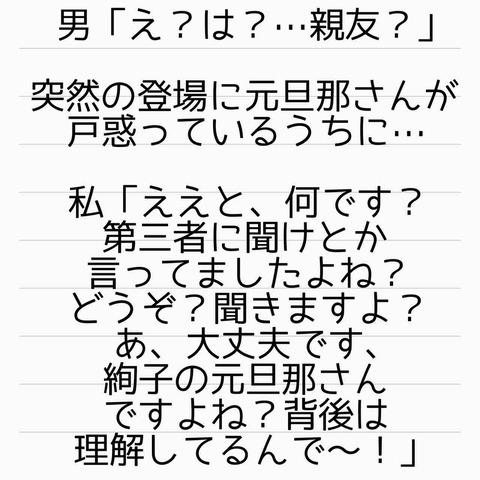 男「え？は？…親友？」
突然の登場に元旦那さんが
戸惑っているうちに…
私「ええと、何です？
第三者に聞けとか
言ってましたよね？
どうぞ？聞きますよ？
あ、大丈夫です、
絢子の元旦那さん
ですよね？背後は
理解してるんで～！」